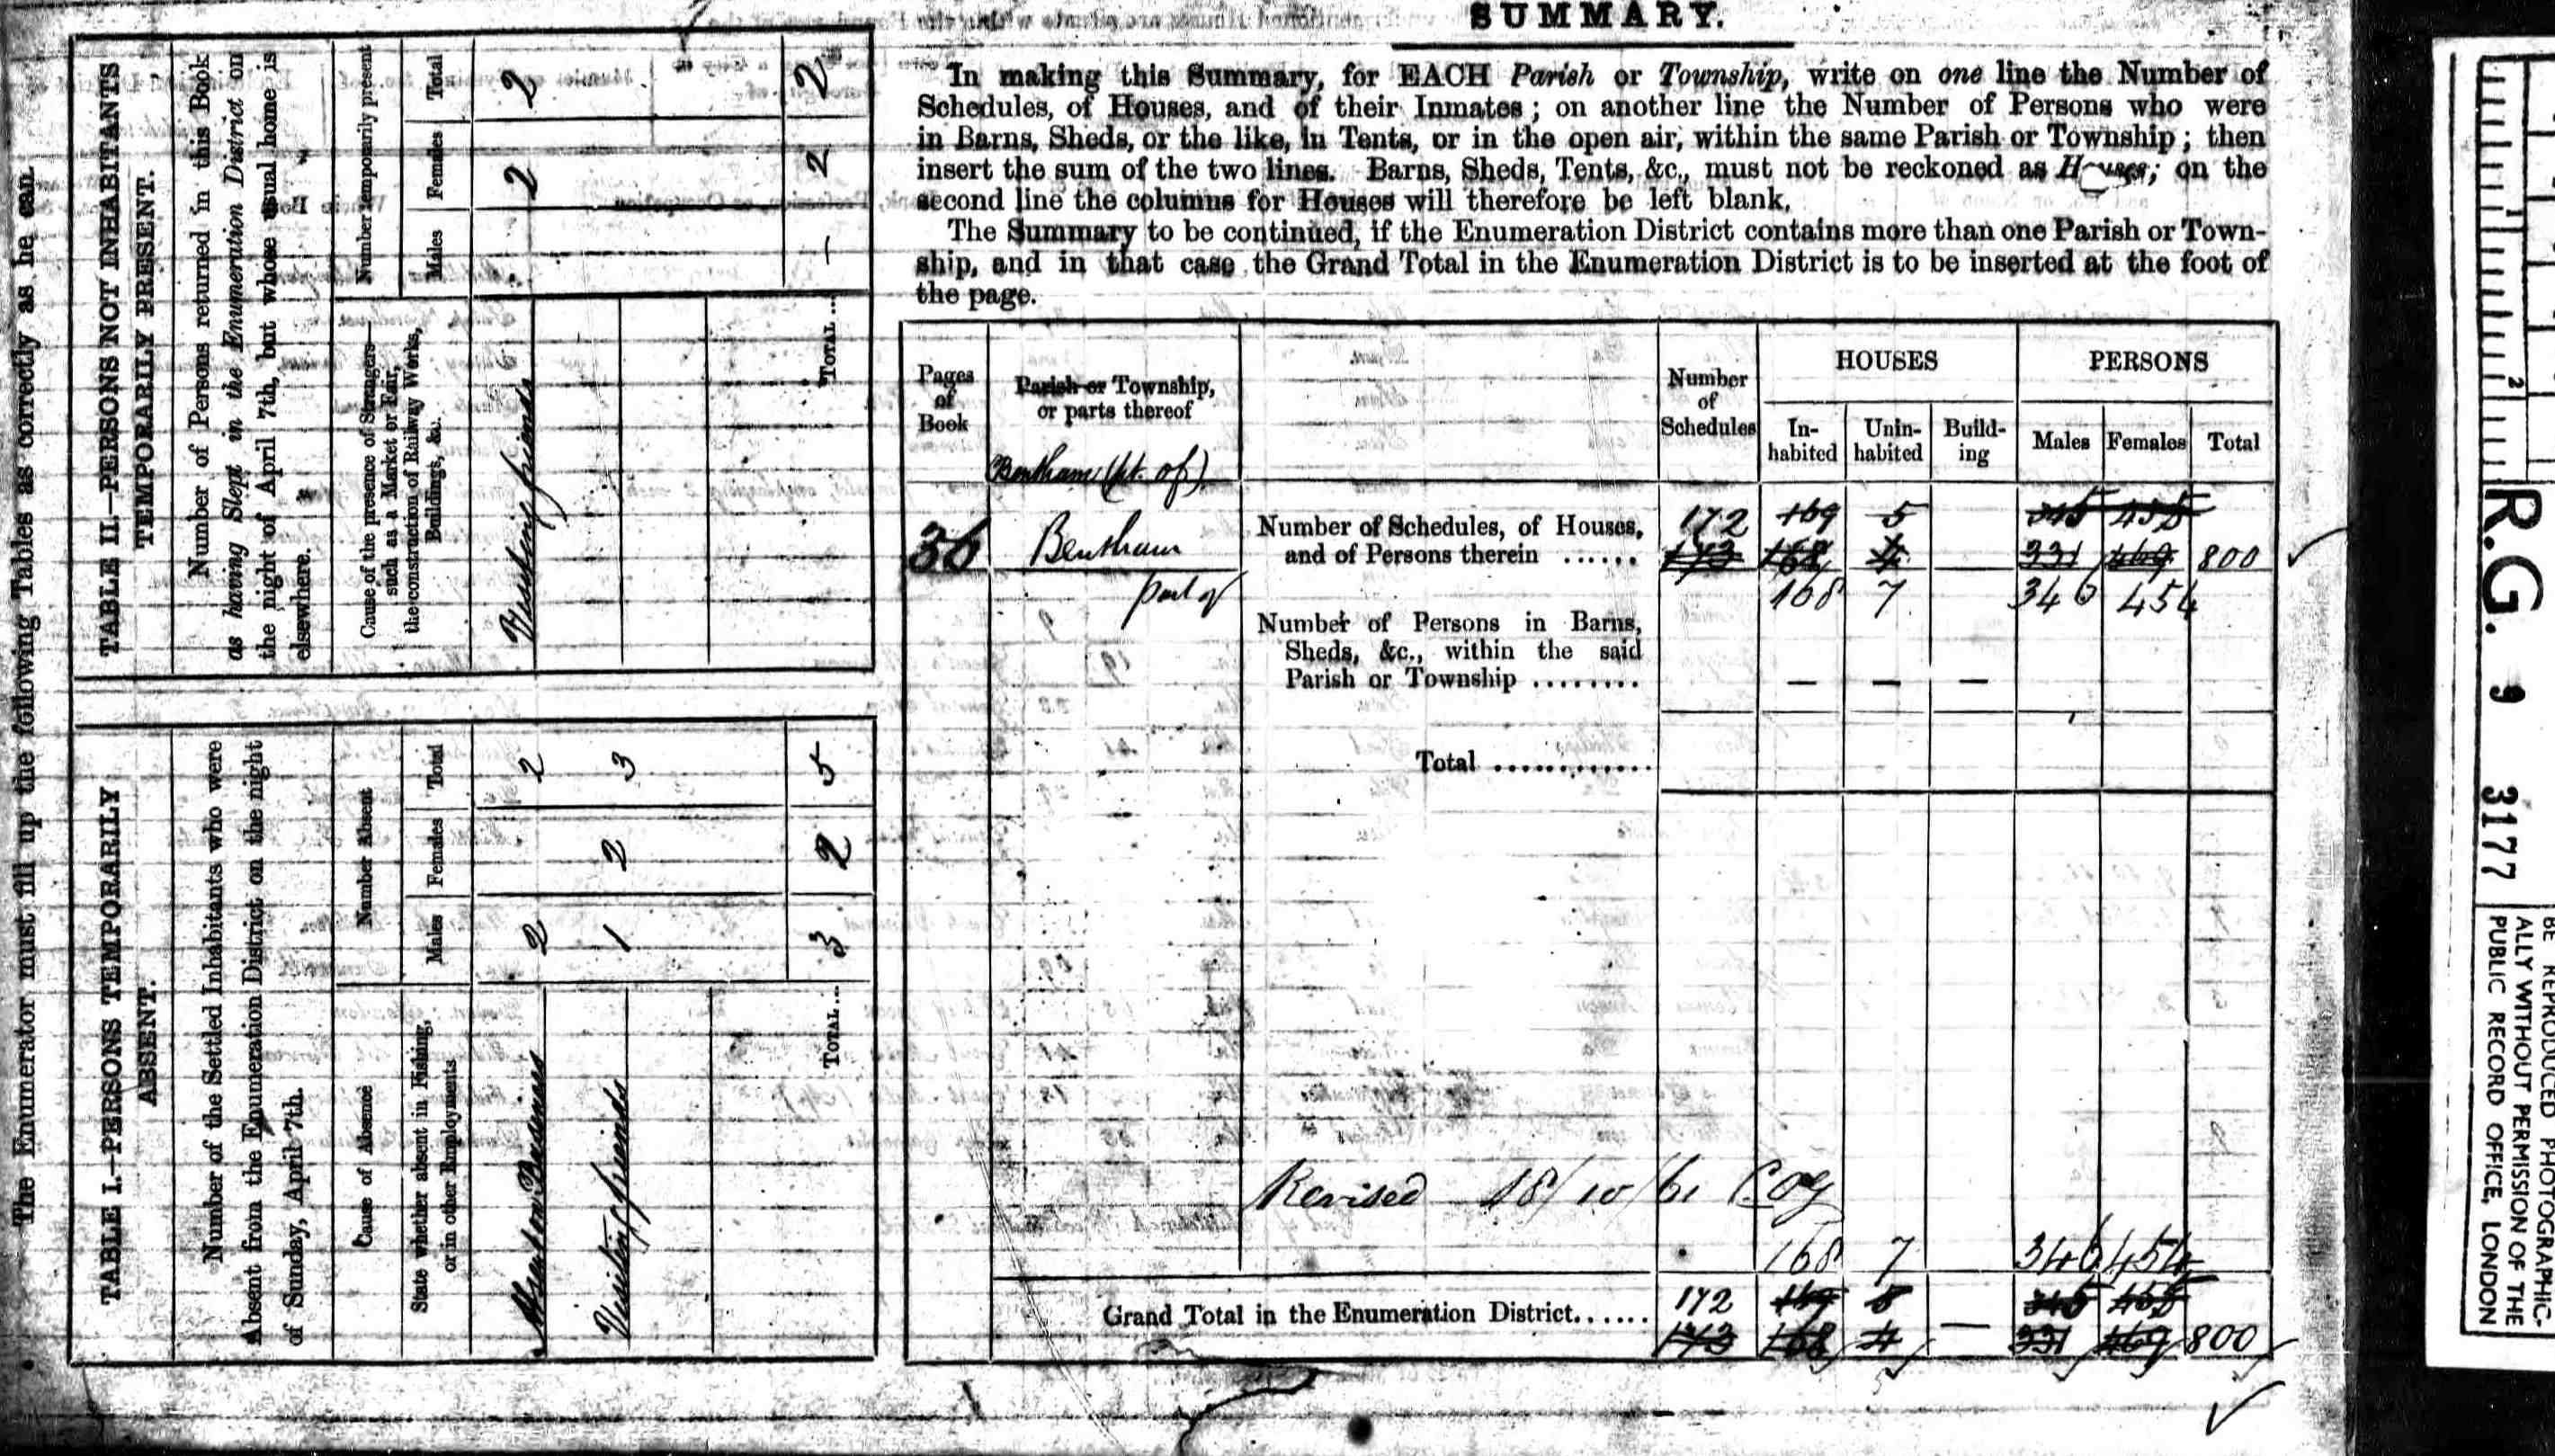 The Enumerator must fill up the following Tables as correctly as he can.
TABLE I.—PERSONS TEMPORARILY
ABSENT.
Number of the Settled Inhabitants who were
Absent from the Enumeration District on the night
of Sunday, April 7th.
Cause of Absence
Number Absent
State whether absent in Fishing,
or in other Employments
Males
Females
Total
Absent on Business 2 2
Visiting friends 1 2 3
TOTAL... 3 2 5
TABLE II.—PERSONS NOT INHABITANTS
TEMPORARILY PRESENT.
Number of Persons returned in this Book
as having Slept in the Enumeration District on
the night of April 7th, but whose usual home is
elsewhere.
Cause of the presence of Strangers
such as a Market or Fair,
the construction of Railway Works,
Buildings, &c.
Number temporarily present
Males
Females
Total
Visiting friends 2 2
TOTAL ... — 2 2
SUMMARY.
In making this Summary, for EACH Parish or Township, write on one line the Number of
Schedules, of Houses, and of their Inmates; on another line the Number of Persons who were
in Barns, Sheds, or the like, in Tents, or in the open air, within the same Parish or Township; then
insert the sum of the two lines. Barns, Sheds, Tents, &c., must not be reckoned as Houses; on the
second line the columns for Houses will therefore be left blank.
The Summary to be continued, if the Enumeration District contains more than one Parish or Town-
ship, and in that case the Grand Total in the Enumeration District is to be inserted at the foot of
the page.
Pages
of
Book
Parish or Township,
or parts thereof
Number
of
Schedules
HOUSES
PERSONS
In-
habited
Unin-
habited
Build-
ing
Males
Females
Total
Bentham (pt. of)
36 Bentham
part of
Number of Schedules, of Houses,
and of Persons therein ......
172 169 5 345 455
173 168 4 331 469 800
168 7 346 454
Number of Persons in Barns,
Sheds, &c., within the said
Parish or Township ........
— — —
Total .............
Revised 18/10/61
168 7 346 454
Grand Total in the Enumeration District......
172 169 5 345 455
173 168 4 — 331 469 800
R.G. 9 3177
BE REPRODUCED PHOTOGRAPHIC-
ALLY WITHOUT PERMISSION OF THE
PUBLIC RECORD OFFICE, LONDON
1
2